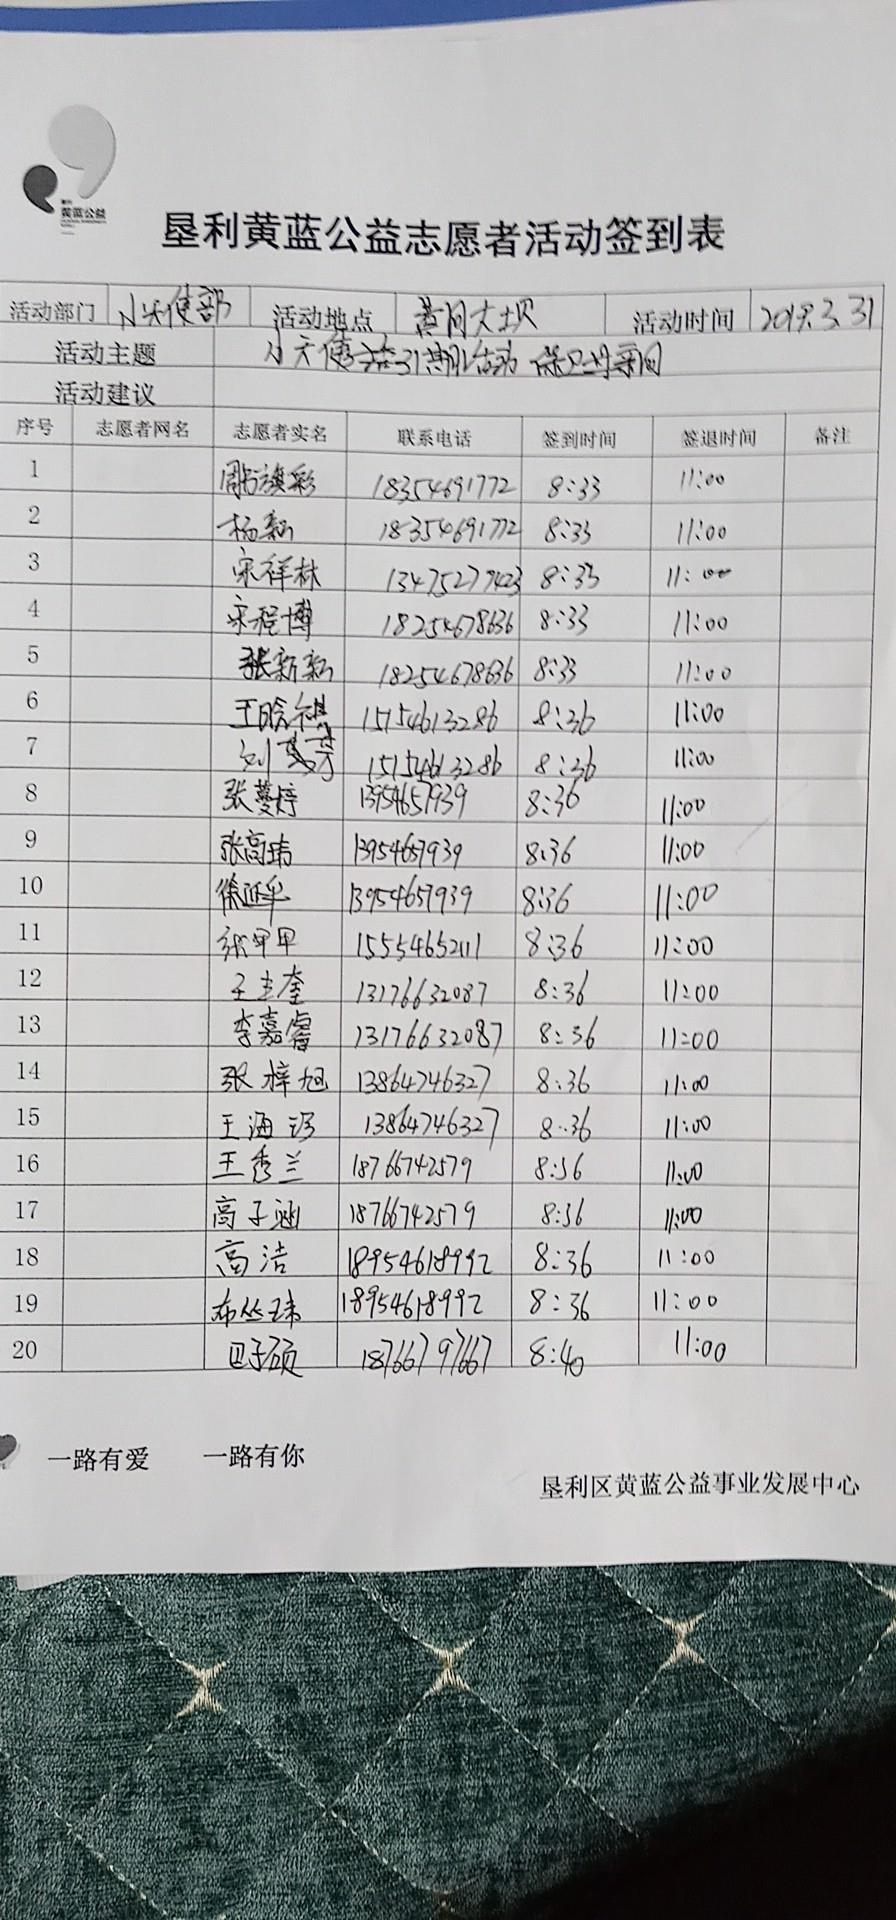 黄蓝公益
垦利黄蓝公益志愿者活动签到表
活动部门 小天使部 活动地点 黄河大坝 活动时间 2019.3.31
活动主题 小天使 31期 活动 保卫母亲河
活动建议
序号 志愿者网名 志愿者实名 联系电话 签到时间 签退时间 备注
1 18354691772 8:33 11:00
2 杨 18354691772 8:33 11:00
3 宋祥林 13475277423 8:33 11:00
4 宋程博 18254678636 8:33 11:00
5 张新新 18254678636 8:33 11:00
6 王晗祺 15154613286 8:36 11:00
7 刘 芳 15154613286 8:36 11:00
8 张蔓婷 13954657939 8:36 11:00
9 张高玮 13954657939 8:36 11:00
10 徐延军 13954657939 8:36 11:00
11 张甲甲 15554652111 8:36 11:00
12 王圭奎 13176632087 8:36 11:00
13 李嘉睿 13176632087 8:36 11:00
14 张梓旭 13864746327 8:36 11:00
15 王海 13864746327 8:36 11:00
16 王秀兰 18766742579 8:36 11:00
17 高子涵 18766742579 8:36 11:00
18 高洁 18954618992 8:36 11:00
19 布丛珠 18954618992 8:36 11:00
20 巴子硕 18766797667 8:40 11:00
一路有爱 一路有你
垦利区黄蓝公益事业发展中心